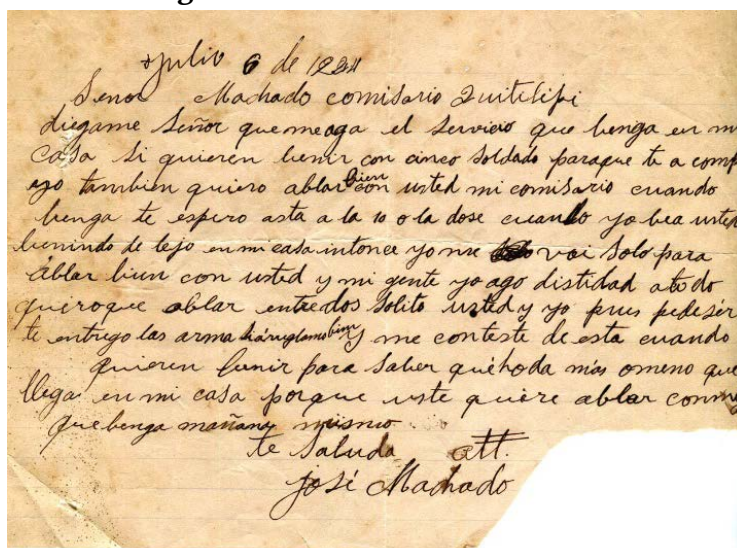 Julio 6 de 1924
Señor Machado comisario Quitilipi
diegame Señor que me aga el Servicio que benga en mi
casa Si quieren benir con cinco Soldado para que te a comp
yo tambien quiero ablar bien con usted mi comisario cuando
benga te espero asta a la 10 o la dose cuando yo bea usted
benindo de lejo en mi casa intonce yo me voi Solo para
ablar bien con usted y mi gente yo ago distidad a todo
quiro que ablar entre dos Solito usted y yo pues
te entrego las arma bien y me conteste de esta cuando
quieren benir para Saber más o meno que
llega en mi casa porque uste quiere ablar conmi
que benga mañana mismo
te Saluda att.
José Machado